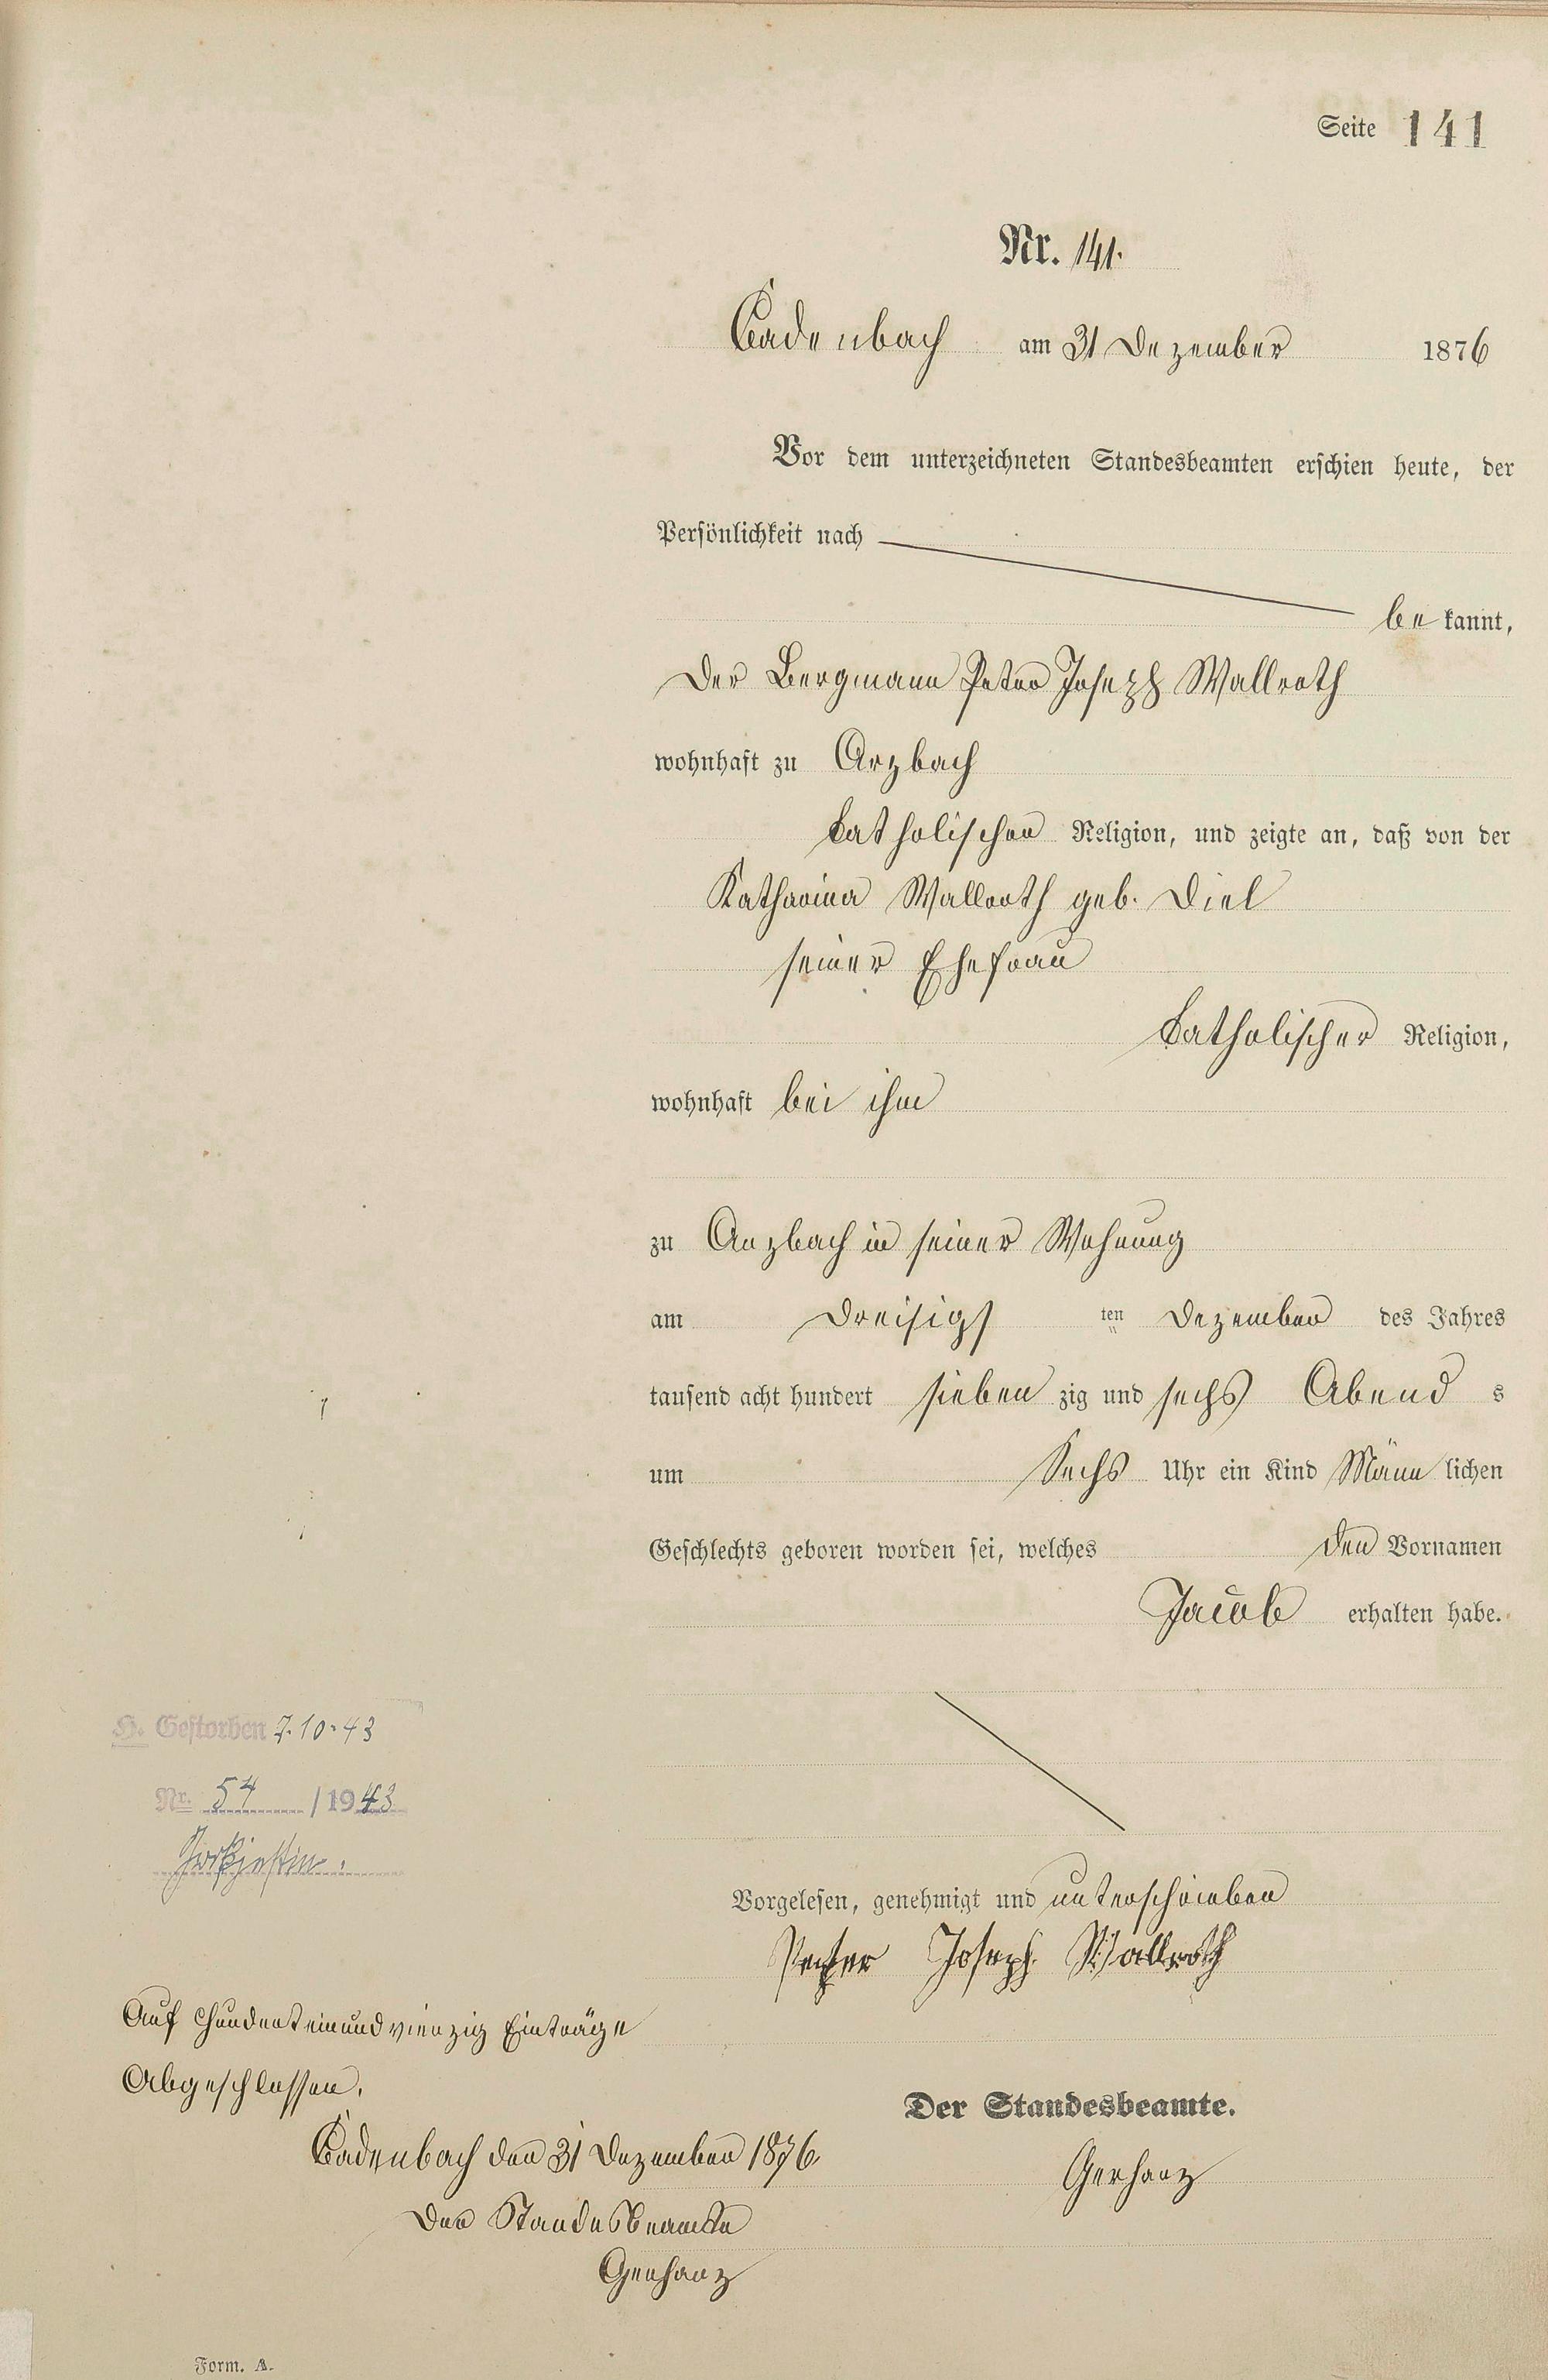 Seite 141
Nr. 141.
Cadenbach am 31 Dezember 1876
Vor dem unterzeichneten Standesbeamten erschien heute, der
Persönlichkeit nach
be kannt,
der Bergmann Peter Joseph Wallroth
wohnhaft zu Arzbach
katholischer Religion, und zeigte an, daß von der
Katharina Wallroth geb. Diel
seiner Ehefrau
katholischer Religion,
wohnhaft bei ihm
zu Arzbach in seiner Wohnung
am dreisigs ten Dezember des Jahres
tausend acht hundert sieben zig und sechs Abend s
um Sechs Uhr ein Kind Männ lichen
Geschlechts geboren worden sei, welches den Vornamen
Jacob erhalten habe.
H. Gestorben 7.10.43
Nr. 54 /1943
Vorgelesen, genehmigt und unterschrieben
Peter Joseph Wallroth
Auf Hundert einund vierzig Einträge
Abgeschlossen.
Cadenbach den 31 Dezember 1876.
Der Standesbeamte
Gerharz
Der Standesbeamte.
Gerharz
Form. A.